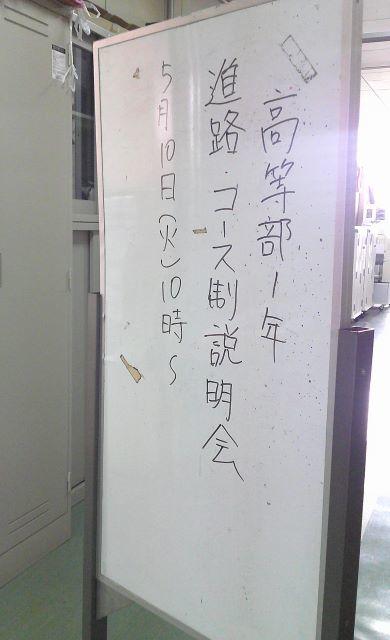 高等部1年
進路・コース制説明会
5月10日(火)10時~